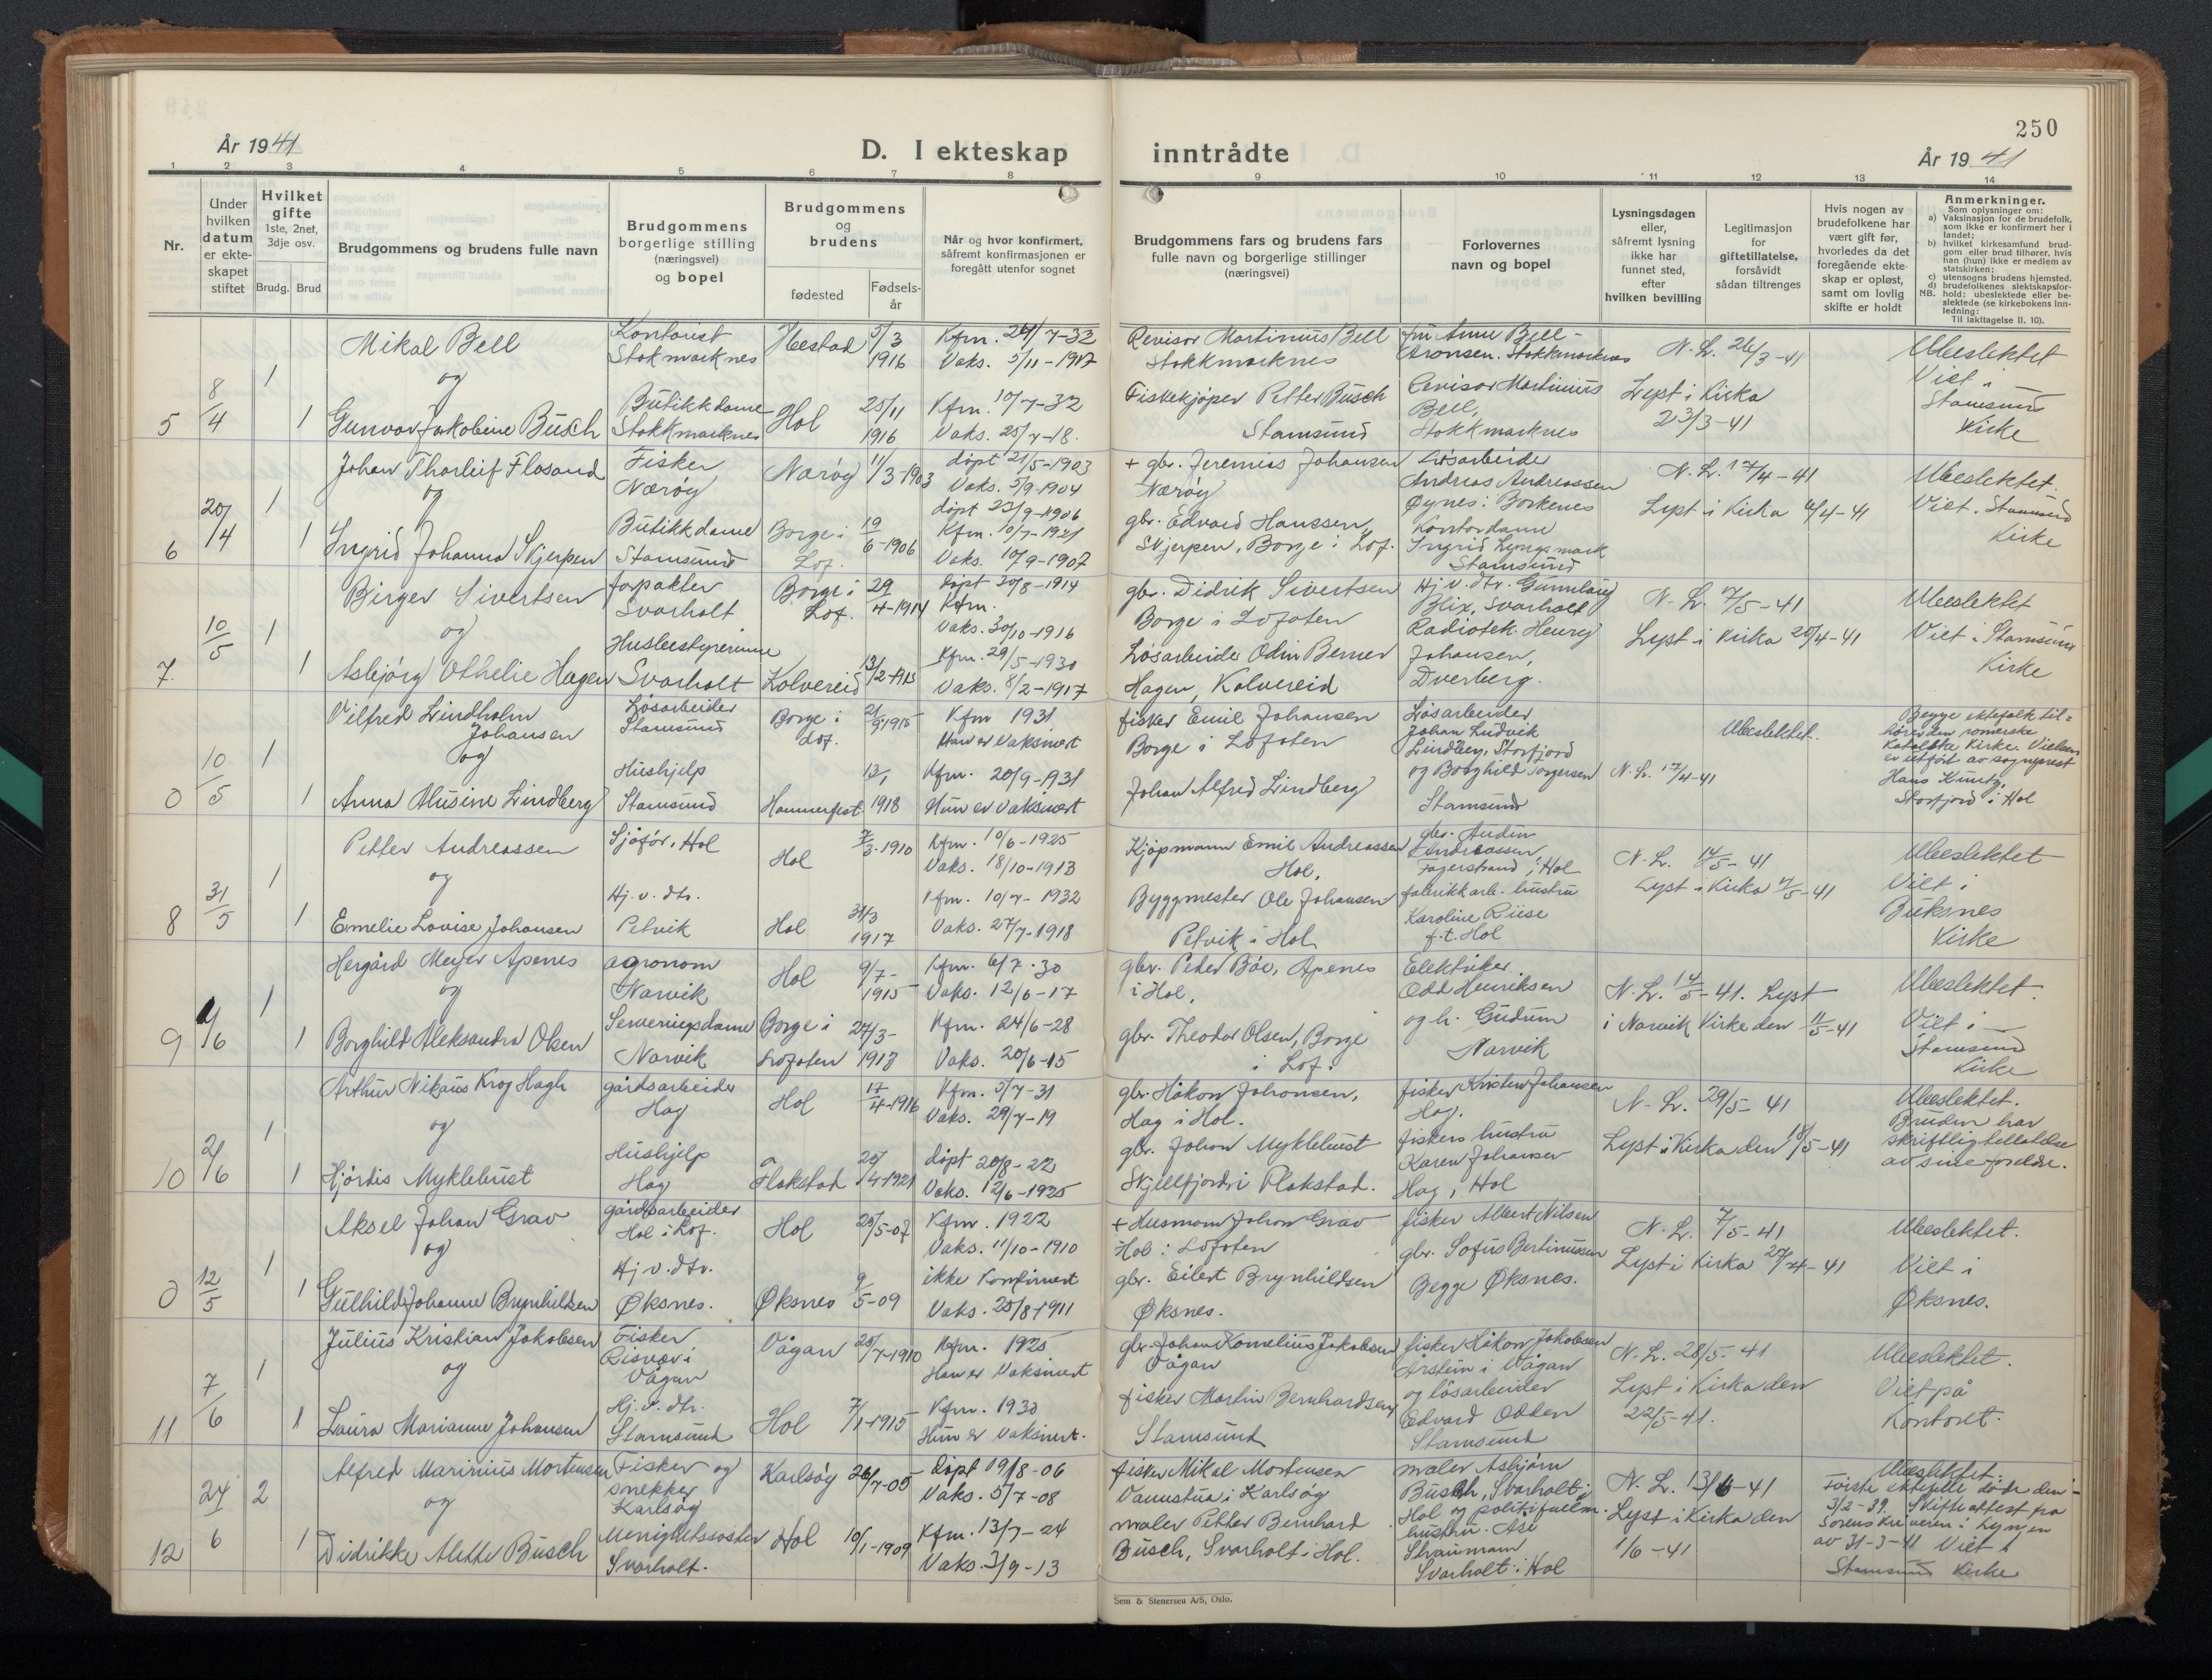 250
År 1941
D. I ekteskap inntrådte
År 1941
1 2 3 4 5 6 7 8 9 10 11 12 13 14
Nr.
Under hvilken datum er ekteskapet stiftet
Hvilket gifte 1ste, 2net, 3dje osv.
Brudg. Brud
Brudgommens og brudens fulle navn
Brudgommens borgerlige stilling (næringsvei) og bopel
Brudgommens og brudens
fødested
Fødselsår
Når og hvor konfirmert, såfremt konfirmasjonen er foregått utenfor sognet
Brudgommens fars og brudens fars fulle navn og borgerlige stillinger (næringsvei)
Forlovernes navn og bopel
Lysningsdagen eller, såfremt lysning ikke har funnet sted, efter hvilken bevilling
Legitimasjon for giftetillatelse, forsåvidt sådan tiltrenges
Hvis nogen av brudefolkene har vært gift før, hvorledes da det foregående ekteskap er opløst, samt om lovlig skifte er holdt
Anmerkninger.
Som oplysninger om:
a) Vaksinasjon for de brudefolk, som ikke er konfirmert her i landet;
b) hvilket kirkesamfund brudgom eller brud tilhører, hvis han (hun) ikke er medlem av statskirken;
c) utensogns brudens hjemsted.
d) brudefolkenes slektskapsforhold: ubeslektede eller beslektede (se kirkebokens innledning:
NB. Til iakttagelse II. 10).
5 8/4 1 1
Mikal Bell
og
Gunvor Jakobine Busch
Kontorist
Stokmarknes
Butikkdame
Stokkmarknes
5/3 1916
Hol 25/11 1916
Kfm. 24/7-32
Vaks. 5/11-1917
Kfm. 10/7-32
Vaks. 25/7-18.
Revisor Martinius Bell
Stokkmarknes
Fiskekjøper Petter Busch
Stamsund
fru Anne Bell-
Aronsen. Stokkmarknes
Revisor Martinius
Bell,
Stokkmarknes
N. L. 26/3-41
Lyst i Kirka
23/3-41
Ubeslektet
Viet i
Stamsund
Kirke
6 20/4 1 1
Johan Tharleif Flosand
og
Ingrid Johanna Skjerpen
Fisker
Nærøy
Butikkdame
Stamsund
Nærøy 11/3-1903
Borge i Lof. 19/6-1906
døpt 21/5-1903
Vaks. 5/9-1904
døpt 23/9-1906
Kfm. 10/7-1921
Vaks. 10/9-1907
+ gbr. Jeremias Johansen
Nærøy
gbr. Edvard Hanssen,
Skjerpen, Borge i Lof.
Løsarbeide
Andreas Andreassen
Øynes i Borkenes
Kontordame
Ingrid Lyngsmark
Stamsund
N. L. 17/4-41
Lyst i Kirka 6/4-41
Ubeslektet.
Viet. Stamsund
Kirke
7. 10/5 1 1
Birger Sivertsen
og
Asbjørg Othelie Hagen
forpakter
Svarholt
Husbestyrerinne
Svarholt
Borge i Lof. 29/4-1914
Kolvereid 13/2-1915
Døpt 30/8-1914
Kfm.
Vaks. 30/10-1916
Kfm. 29/5-1930
Vaks. 8/2-1917
gbr. Didrik Sivertsen
Borge i Lofoten
Løsarbeider Odin Berner
Hagen, Kolvereid
Hj. v. dtr. Gunnlaug
Blix, Svarholt
Radiotek. Henry
Johansen,
Dverberg.
N. L. 17/5-41
Lyst i Kirka 20/4-41
Ubeslektet
Viet i Stamsund
Kirke
0 10/5 1 1
Vilfred Lindholm
Johansen
og
Anna Alusine Lindberg
Løsarbeider
Stamsund
Hushjelp
Stamsund
Borge i Lof. 21/9 1915
Hammerfest 13/1 1918
Kfm 1931
Han er Vaksinert
Kfm. 20/9-1931
Hun er Vaksinert
fisker Emil Johansen
Borge i Lofoten
Johan Alfred Lindberg
Løsarbeider
Johan Ludvik
Lindberg, Storfjord
og Borghild Torgersen
Stamsund
N. L. 17/4-41
Ubeslektet.
Begge ektefolk til=
hører den romerske
Katolske Kirke. Vielsen
er utført av sogneprest
Hans Küntz,
Storfjord i Hol
8 31/5 1 1
Petter Andreassen
og
Emelie Lovise Johansen
Sjåfør, Hol
Hj. v. dtr.
Petvik
Hol 7/3-1910
Hol 31/3 1917
Kfm. 10/6-1925
Vaks. 18/10-1913
Kfm. 10/7-1932
Vaks. 27/7-1918
Kjøpmann Emil Andreassen
Hol,
Byggmester Ole Johansen
Petvik i Hol
gbr. Audun
Andreassen
Fagerstrand i Hol
fabrikkarb. hustru
Karoline Riise
f. t. Hol
N. L. 14/5-41
Lyst i Kirka 11/5-41
Ubeslektet
Viet i
Buksnes
Kirke
9 1/6 1 1
Hergård Meyer Apenes
og
Borghild Aleksandra Olsen
agronom
Narvik
Serveringsdame
Narvik
Hol 9/7-1915
Borge i Lofoten 27/3-1913
Kfm. 6/7.30
Vaks. 12/6-17
Kfm. 24/6-28
Vaks. 20/6-15
gbr. Peder Båe, Apenes
i Hol,
gbr. Theodor Olsen, Borge
i Lof.
Elektriker
Odd Henriksen
og h. Gudrun
Narvik
N. L. 14/5-41. Lyst
i Narvik Kirke den 11/5-41
Ubeslektet.
Viet i
Stamsund
Kirke
10 2/6 1 1
Arthur Nikaus Krog Hagh
og
Hjördis Myklebust
gårdsarbeider
Hag
Hushjelp
Hag
Hol 17/4-1916
Flakstad 20/4-1921
Kfm. 5/7-31
Vaks. 29/7-19
døpt 20/8-22
Vaks. 12/6-1925
gbr. Håkon Johansen,
Hag i Hol.
gbr. Johan Myklebust
Skjellfjord i Flakstad.
fisker Kristen Johansen
Hag.
fiskers hustru
Karen Johansen
Hag i Hol
N. L. 29/5-41
Lyst i Kirka den 18/5-41
Ubeslektet.
Bruden har
skriftlig tillatelse
av sine foreldre.
0 12/5 1 1
Aksel Johan Grav
og
Gulhild Johanne Brynhildsen
gårdsarbeider
Hol i Lof.
Hj. v. dtr.
Øksnes.
Hol 20/5-07
Øksnes 9/5-09
Kfm. 1922
Vaks. 11/10-1910
ikke Konfirmert
Vaks. 25/8-1911
+ Husmann Johan Grav
Hol i Lofoten
gbr. Eilert Brynhildsen
Øksnes.
fisker Albert Nilsen
gbr. Sofus Bertinussen
Begge Øksnes.
N. L. 7/5-41
Lyst i Kirka 27/4-41
Ubeslektet.
Viet i
Øksnes.
11 7/6 1 1
Julius Kristian Jakobsen
og
Laura Marianne Johansen
Fisker
Risvær i
Vågan
Hj. v. dtr.
Stamsund
Vågan 20/7-1910
Hol 7/1-1915
Kfm. 1925
Han er Vaksinert
Kfm. 1930
Hun er Vaksinert.
gbr. Johan Kornelius Jakobsen
Vågan
fisker Martin Bernhardsen
Stamsund
fisker Håkon Jakobsen
Årstein i Vågan
og løsarbeider
Edvard Odden
Stamsund
N. L. 28/5-41
Lyst i Kirka den
22/5-41.
Ubeslektet.
Viet på
Kontoret.
12 24/6 2 1
Alfred Marinius Mortensen
og
Didrikke Alette Busch
Fisker og
snekker
Karlsøy
Menighetssøster
Svarholt.
Karlsøy 26/7-05
Hol 10/1-1909
Døpt 19/8-06
Vaks. 5/7-08
Kfm. 13/7-24
Vaks. 3/9-13
fisker Mikal Mortensen
Vannstua i Karlsøy
maler Petter Bernhard
Busch, Svarholt i Hol.
maler Asbjørn
Busch, Svarholt i
Hol og politifullm.
hustru. Åse
Straumann
Svarholt i Hol
N. L. 13/6-41
Lyst i Kirka den
1/6-41
Ubeslektet.
Første ektefelle døde den
3/2-39. Skifteattest fra
Sorenskriveren i Lyngen
av 31-3-41 Viet i
Stamsund Kirke
Sem & Stenersen A/S, Oslo.